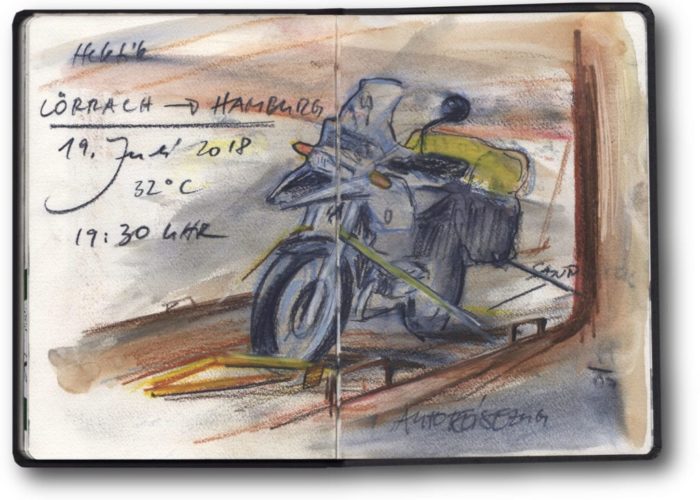 Hektik
LÖRRACH → HAMBURG
19. Juli 2018
32°C
19:30 UHR
AUTOREISEZUG